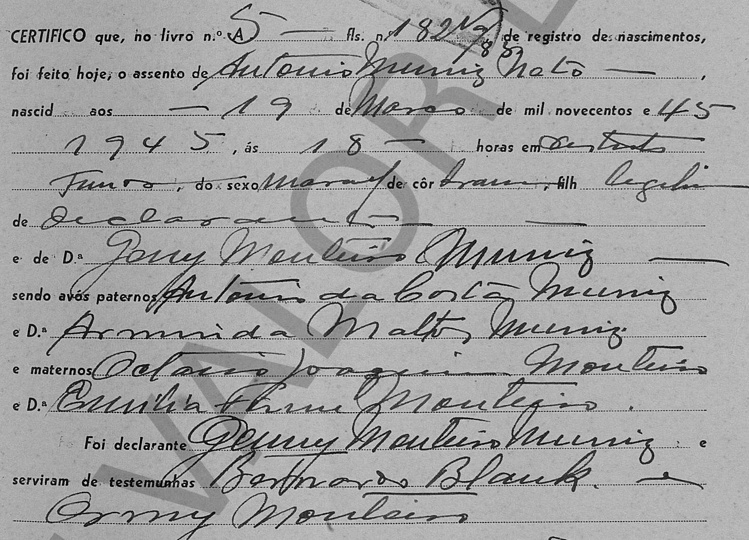 CERTIFICO que, no livro n.º A 5 — fls. n. 182 de registro de nascimentos,
foi feito hoje, o assento de Antonio Muniz Nato — ,
nascid aos — 19 de Março de mil novecentos e 45
1945, ás 18 — horas em
do sexo de côr filh
de declarante —
e de D.ª Geny Monteiro Muniz —
sendo avós paternos Antonio da Costa Muniz
e D.ª Arminda Mattos Muniz
e maternos Octavio Joaquim Monteiro
e D.ª Emilia Monteiro.
Foi declarante Genny Monteiro Muniz e
serviram de testemunhas Bernardo Blank. e
Ormy Monteiro
VALOR